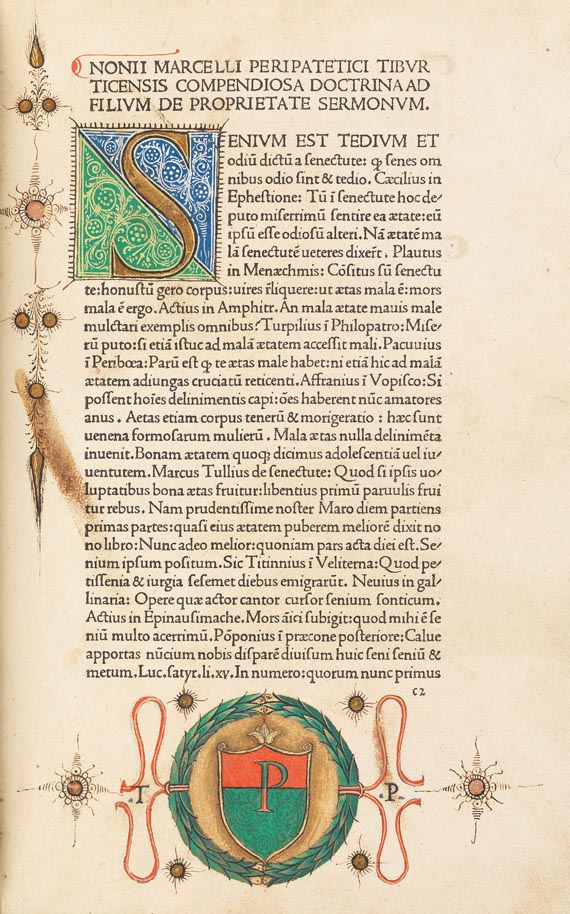 NONII MARCELLI PERIPATETICI TIBVR
TICENSIS COMPENDIOSA DOCTRINA AD
FILIVM DE PROPRIETATE SERMONVM.
SENIVM EST TEDIVM ET
odiū dictū a senectute: ꝙ senes om
nibus odio sint & tedio. Cæcilius in
Ephestione: Tū ī senectute hoc de/
puto miserrimū sentire ea ætate: eū
ipsū esse odiosū alteri. Nā ætatē ma
lā senectutē ueteres dixert̄. Plautus
in Menæchmis: Cōsitus sū senectu
te: honustū gero corpus: uires īliquere: ut ætas mala ē: mors
mala ē ergo. Actius in Amphitr. An mala ætate mauis male
mulctari exemplis omnibus? Turpilius ī Philopatro: Mise/
rū puto: si etiā istuc ad malā ætatem accessit mali. Pacuuius
ī Peribœa: Parū est ꝙ te ætas male habet: ni etiā hic ad malā
ætatem adiungas cruciatū reticenti. Affranius ī Vopisco: Si
possent hoīes delinimentis capi: oēs haberent nūc amatores
anus. Aetas etiam corpus tenerū & morigeratio : hæc sunt
uenena formosarum mulierū. Mala ætas nulla delinimēta
inuenit. Bonam ætatem quoqꝫ dicimus adolescentiā uel iu/
uentutem. Marcus Tullius de senectute: Quod si ipsis uo/
luptatibus bona ætas fruitur: libentius primū paruulis frui
tur rebus. Nam prudentissime noster Maro diem partiens
primas partes: quasi eius ætatem puberem meliorē dixit no
no libro: Nunc adeo melior: quoniam pars acta diei est. Se/
nium ipsum positum. Sic Titinnius ī Veliterna: Quod pe/
tissenia & iurgia sesemet diebus emigrarūt. Neuius in gal/
linaria: Opere quæ actor cantor cursor senium sonticum.
Actius in Epinausimache. Mors āici subigit: quod mihi ē se
niū multo acerrimū. Pōponius ī præcone posteriore: Calue
apportas nūcium nobis disparē diuisum huic seni seniū &
metum. Luc. satyr. li. xv. In numero: quorum nunc primus
c2
.T. P .P.